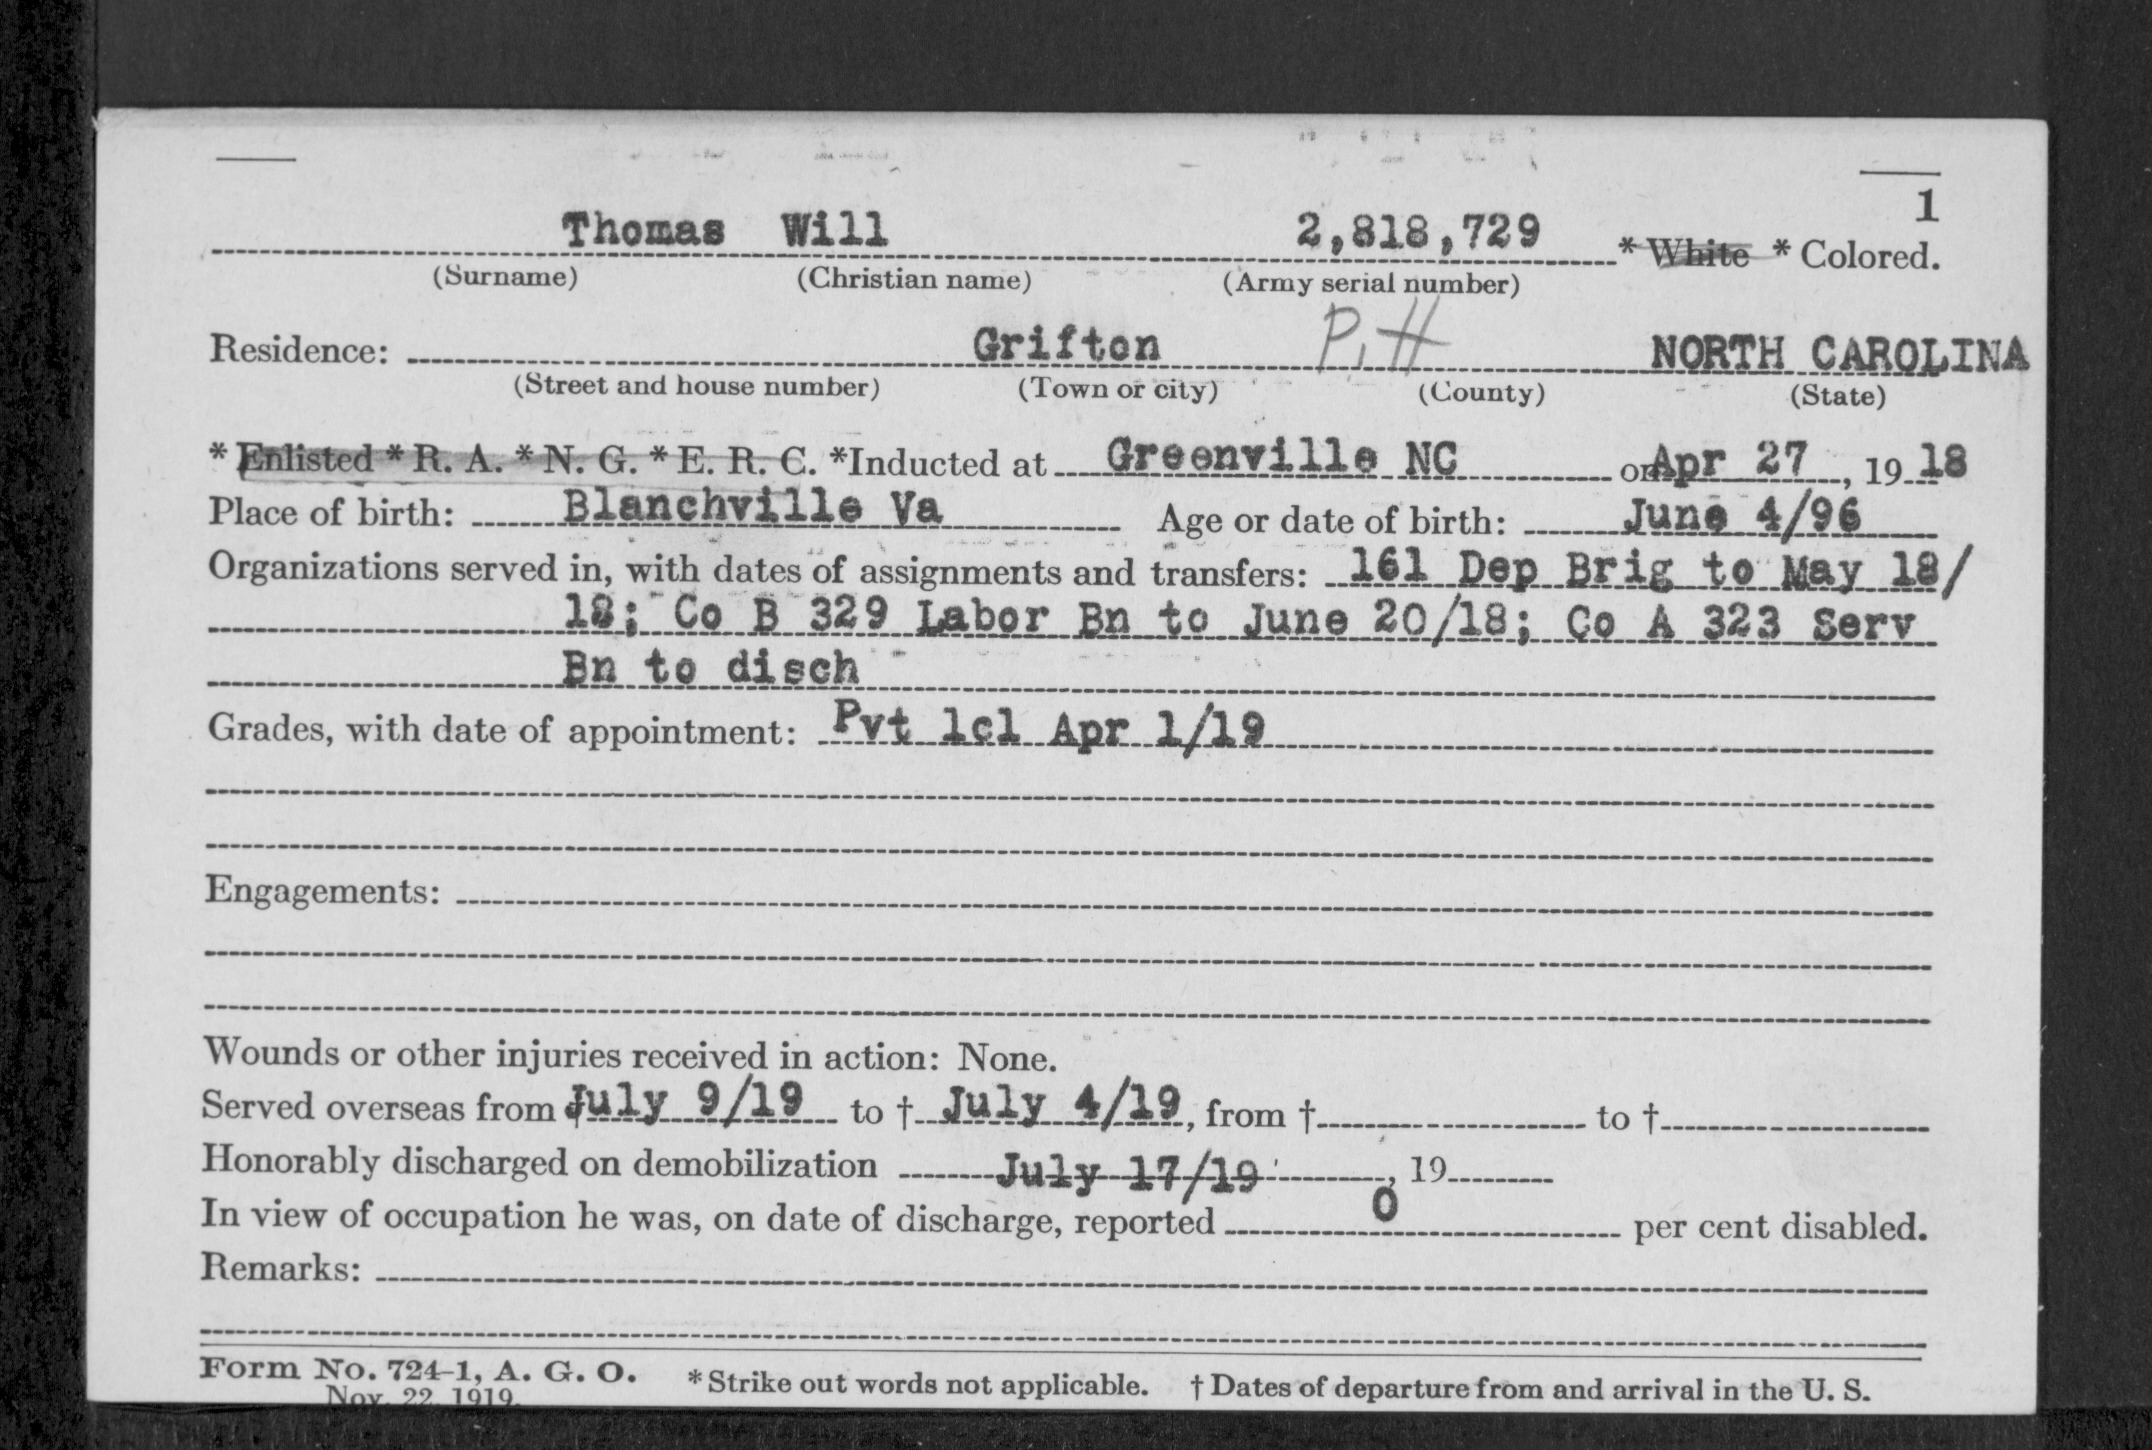 1
Thomas Will 2,818,729 * White * Colored.
(Surname) (Christian name) (Army serial number)
Residence: Grifton Pitt NORTH CAROLINA
(Street and house number) (Town or city) (County) (State)
* Enlisted * R. A. * N. G. * E. R. C. *Inducted at Greenville NC on Apr 27, 19 18
Place of birth: Blanchville Va Age or date of birth: June 4/96
Organizations served in, with dates of assignments and transfers: 161 Dep Brig to May 18/
18; Co B 329 Labor Bn to June 20/18; Co A 323 Serv
Bn to disch
Grades, with date of appointment: Pvt 1cl Apr 1/19
Engagements:
Wounds or other injuries received in action: None.
Served overseas from July 9/19 to † July 4/19, from † to †
Honorably discharged on demobilization July 17/19, 19
In view of occupation he was, on date of discharge, reported 0 per cent disabled.
Remarks:
Form No. 724-1, A. G. O. * Strike out words not applicable. † Dates of departure from and arrival in the U. S.
Nov. 22, 1919.